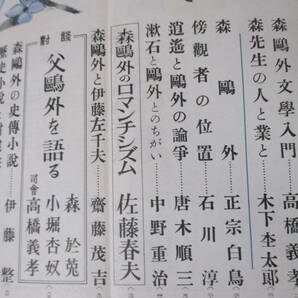 森鷗外文學入門 高橋義孝
森先生の人と業と 木下杢太郎
森鷗外 正宗白鳥
傍觀者の位置 石川淳
逍遙と鷗外の論爭 唐木順三
漱石と鷗外とのちがい 中野重治
森鷗外のロマンチシズム 佐藤春夫
森鷗外と伊藤左千夫 齋藤茂吉
對談
父鷗外を語る
森於菟
小堀杏奴
司會 高橋義孝
森鷗外の史傳小說 伊藤整